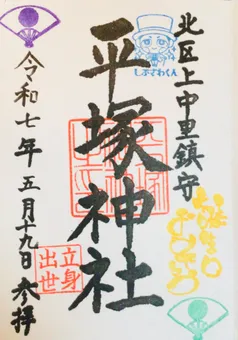 北区上中里鎮守
しぶさわくん
平塚神社
立身
出世
令和七年五月十九日参拝